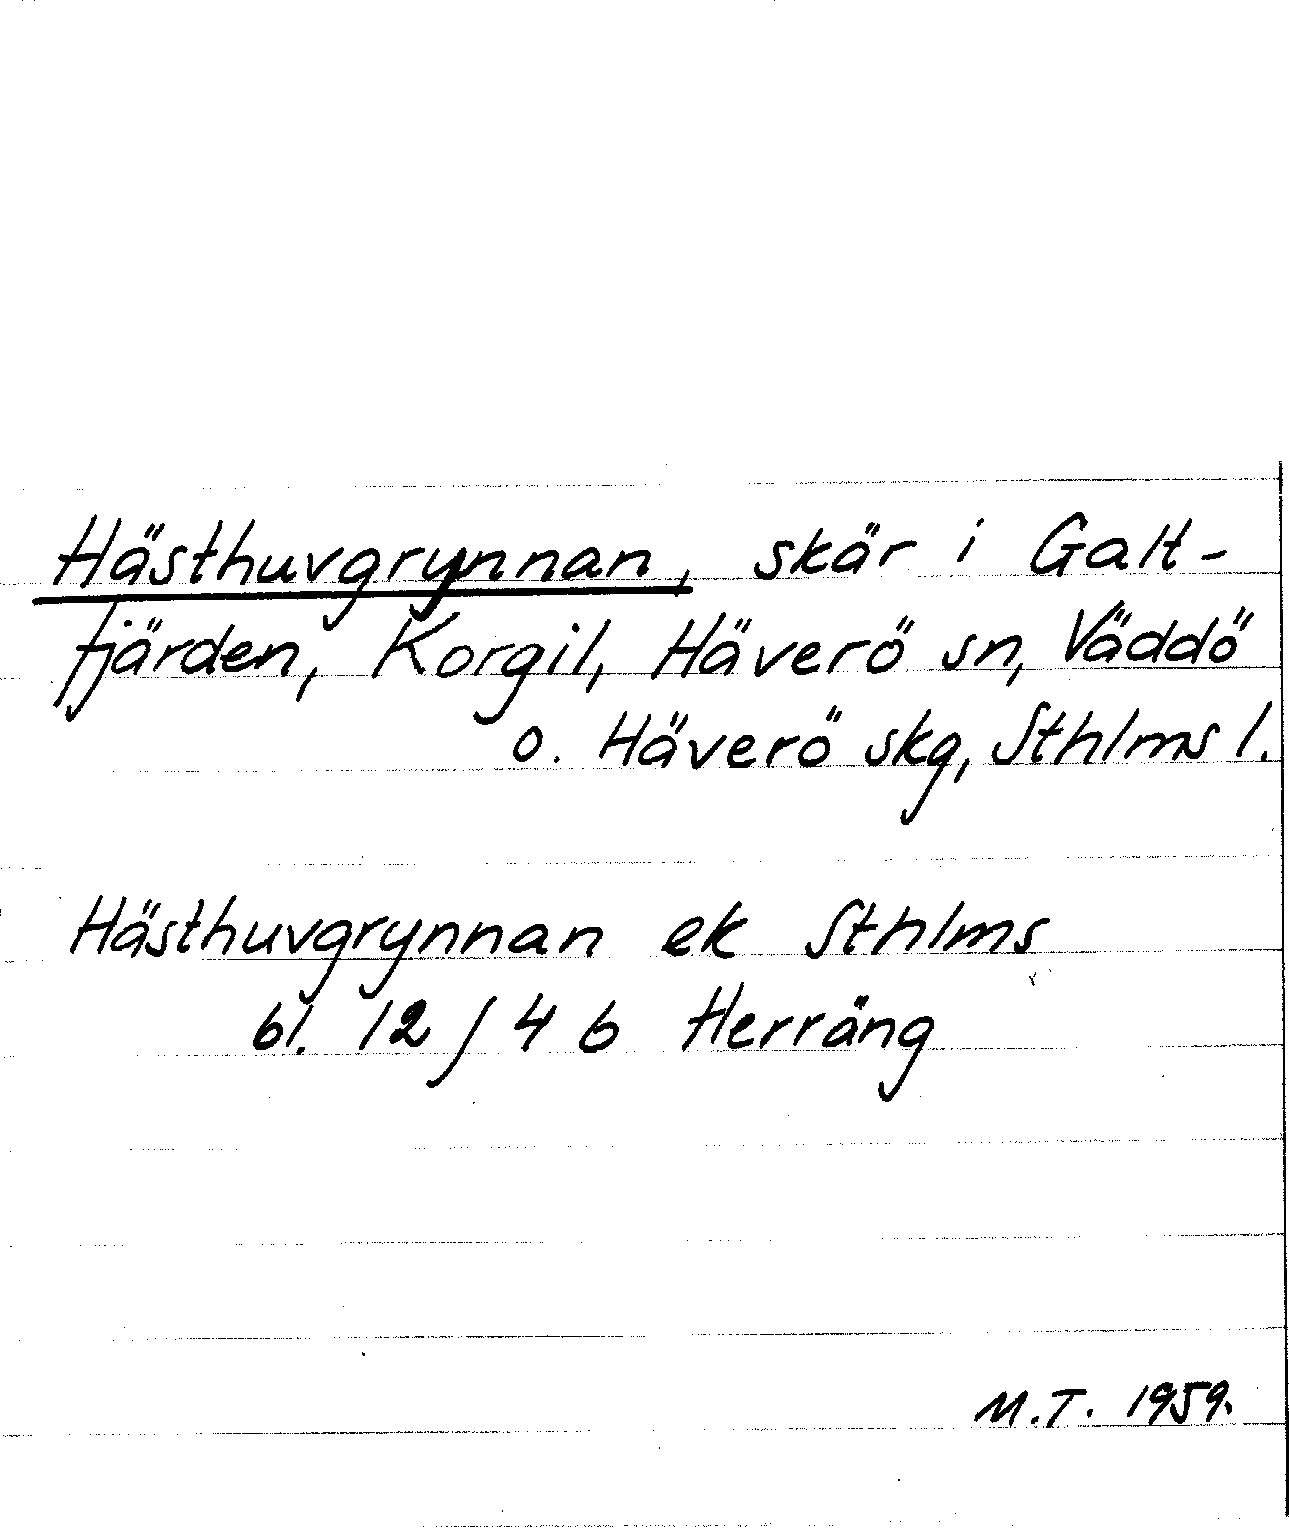 Hästhuvgrynnan, skär i Galt-
fjärden, Korgil, Häverö sn, Väddö
o. Häverö skg, Sthlms l.
Hästhuvgrynnan ek Sthlms
bl. 12 / 4 b Herräng
M.T. 1959.